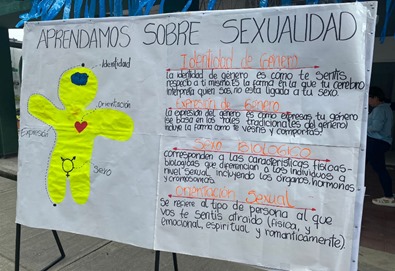 APRENDAMOS SOBRE SEXUALIDAD
Identidad
Orientación
Expresión
Sexo
Identidad de Género
La identidad de género es como te sentís
respecto a ti mismo, es la forma en la que tu cerebro
interpreta quien sos, no esta ligada a tu sexo.
Expresión de Género
La expresión del género es como expresas tu género
se basa en los "roles tradicionales del género)
Incluye la forma como te vestís y comportas.
Sexo Biológico
corresponden a las características físicas-
biológicas que diferencian a los individuos a
nivel sexual, incluyendo los órganos, hormonas
y cromosomas
Orientación Sexual
Se refiere al tipo de persona al que
vos te sentís atraído (física, y
emocional, espiritual y romanticamente).